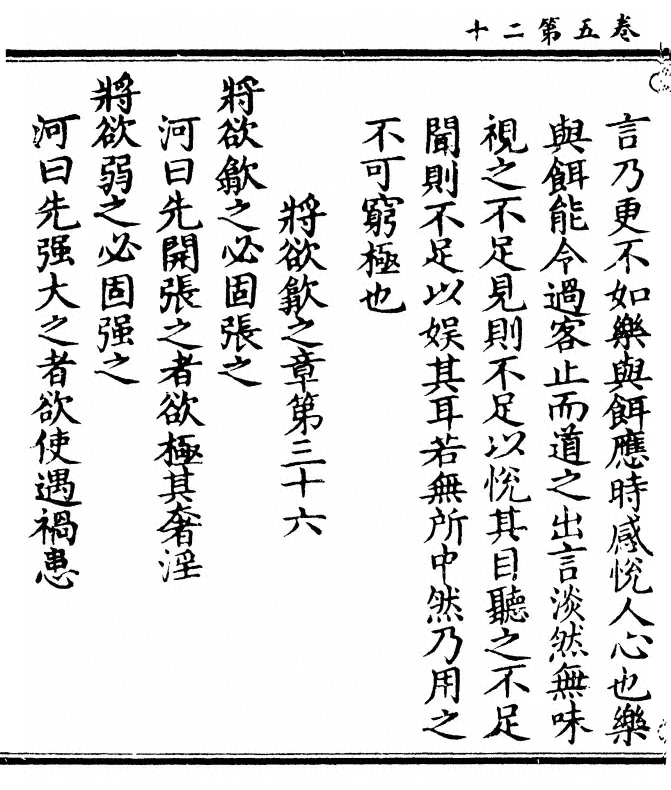 卷五第二十
言乃更不如樂與餌應時感悅人心也樂
與餌能令過客止而道之出言淡然無味
視之不足見則不足以悅其目聽之不足
聞則不足以娛其耳若無所中然乃用之
不可窮極也
將欲歙之章第三十六
將欲歙之必固張之
河曰先開張之者欲極其奢淫
將欲弱之必固强之
河曰先强大之者欲使遇禍患